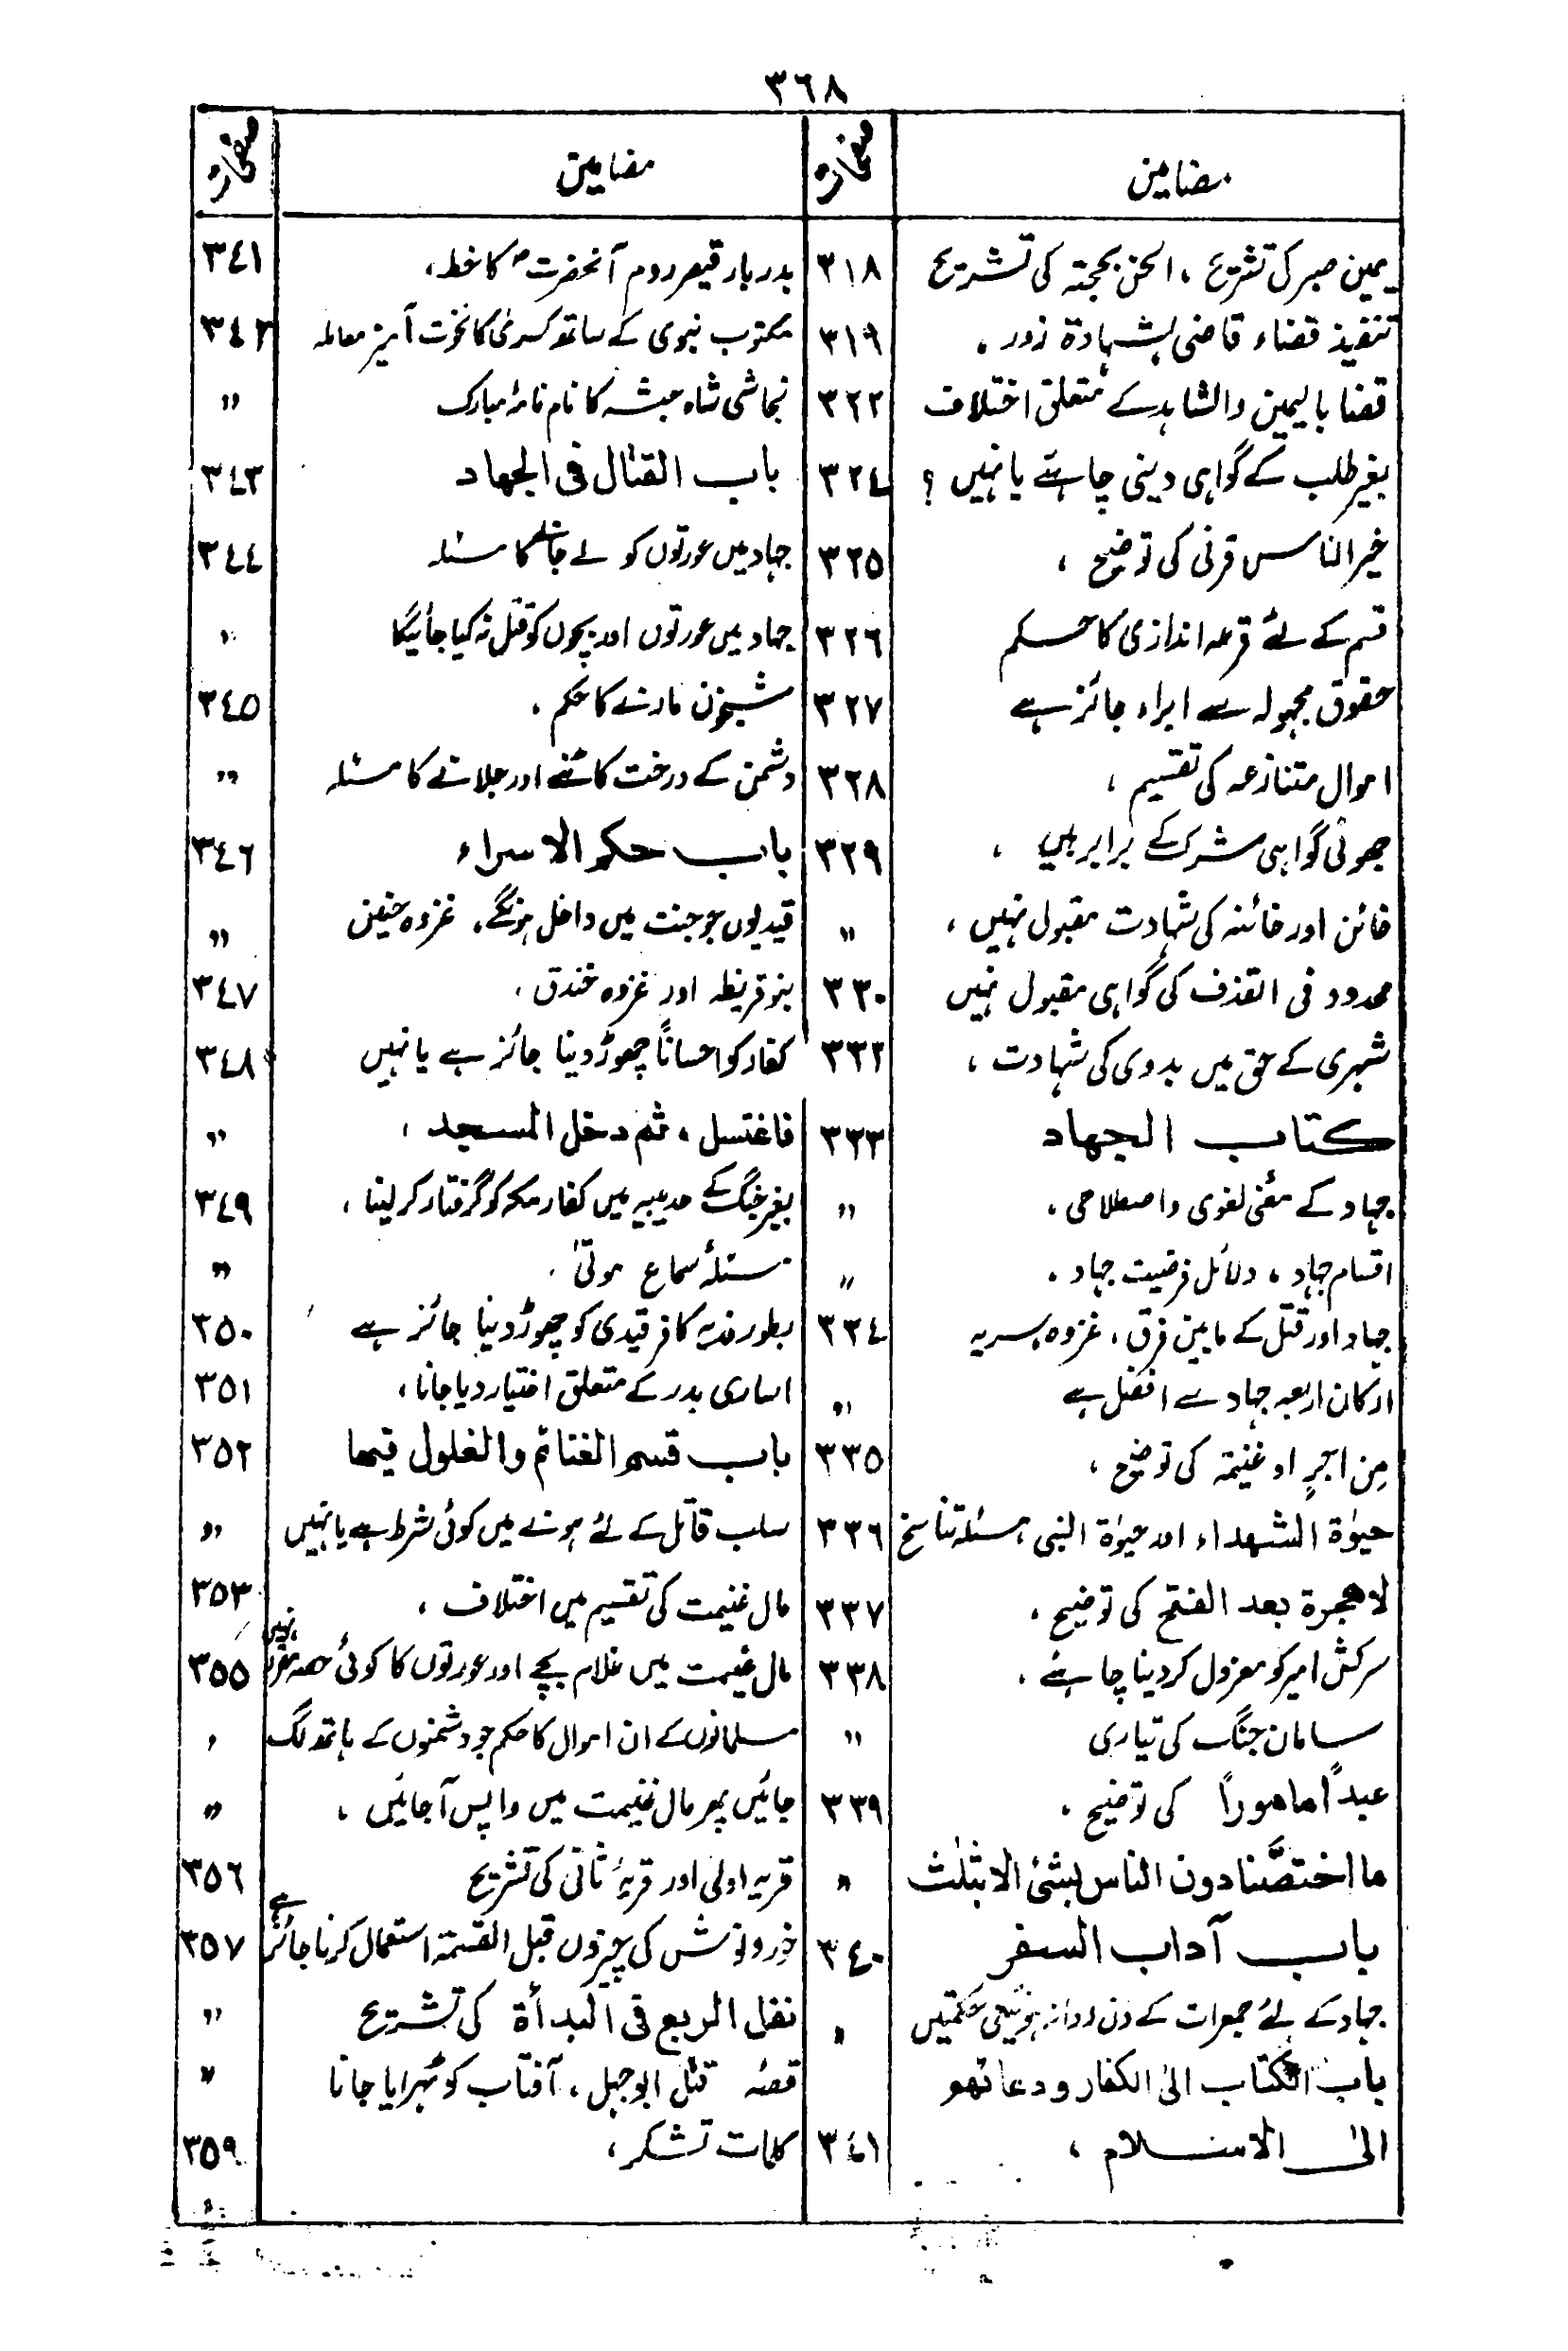 ٣٦٨
مضامین
صفحات
مضامین
صفحات
یمین صبر کی تشریح ، الحن بحجتہ کی تشریح ٣١٨
تنفیذ قضاء قاضی بشہادۃ زور ، ٣١٩
قضا بالیمین والشاہد کے متعلق اختلاف ٣٢٢
بغیر طلب کے گواہی دینی چاہئے یا نہیں ؟ ٣٢٤
خیر الناس قرنی کی توضیح ، ٣٢٥
قسم کے لئے قرعہ اندازی کا حکم ٣٢٦
حقوق مجہولہ سے ابراء جائز ہے ٣٢٧
اموال متنازعہ کی تقسیم ، ٣٢٨
جھوٹی گواہی شرک کے برابر ہیں ، ٣٢٩
خائن اور خائنہ کی شہادت مقبول نہیں ، ״
محدود فی القذف کی گواہی مقبول نہیں ٣٣٠
شہری کے حق میں بدوی کی شہادت ، ٣٣٢
کتاب الجھاد ٣٣٣
جہاد کے معنی لغوی واصطلاحی ، ״
اقسام جہاد ، دلائل فرضیت جہاد ، ״
جہاد اور قتل کے مابین فرق ، غزوہ ، سریہ ٣٣٤
ارکان اربعہ جہاد سے افضل ہے ״
مِن اَجرٍ او غنیمۃ کی توضیح ، ٣٣٥
حیوٰۃ الشہداء اور حیوٰۃ النبی ، مسئلہ تناسخ ٣٣٦
لا ھجرۃ بعد الفتح کی توضیح ، ٣٣٧
سرکش امیر کو معزول کر دینا چاہئے ، ٣٣٨
سامان جنگ کی تیاری ״
عبداً مامورا کی توضیح ، ٣٣٩
ما اختصّنا دون الناس بشئ الا بثلٰث ״
باب آداب السفر ٣٤٠
جہاد کے لئے جمعرات کے دن روانہ ہونیکی حکمتیں ״
باب الکتاب الیٰ الکفار ودعائھم
الیٰ الاسلام ، ٣٤١
بدربار قیصر روم آنحضرت ؐ کا خط ، ٣٤١
مکتوب نبوی کے ساتھ کسریٰ کا نخوت آمیز معاملہ ٣٤٢
نجاشی شاہ حبشہ کا نام نامۂ مبارک ״
باب القتال فی الجھاد ٣٤٣
جہاد میں عورتوں کو لے جانے کا مسئلہ ٣٤٤
جہاد میں عورتوں اور بچوں کو قتل نہ کیا جائیگا ״
شبخون مارنے کا حکم ، ٣٤٥
دشمن کے درخت کاٹنے اور جلانے کا مسئلہ ״
باب حکم الاسراء ٣٤٦
قیدیوں جو جنت میں داخل ہونگے ، غزوہ حنین ״
بنو قریظہ اور غزوہ خندق ، ٣٤٧
کفار کو احساناً چھوڑ دینا جائز ہے یا نہیں ٣٤٨
فاغتسل ، ثم دخل المسجد ، ״
بغیر جنگ کے حدیبیہ میں کفار مکہ کو گرفتار کر لینا ، ٣٤٩
مسئلۂ سماع موتیٰ ، ״
بطور فدیہ کافر قیدی کو چھوڑ دینا جائز ہے ٣٥٠
اساری بدر کے متعلق اختیار دیا جانا ، ٣٥١
باب قسم الغنائم والغلول فیھا ٣٥٢
سلب قاتل کے لئے ہونے میں کوئی شرط ہے یا نہیں ״
مال غنیمت کی تقسیم میں اختلاف ، ٣٥٣
مال غنیمت میں غلام بچے اور عورتوں کا کوئی حصہ مقرر نہیں ٣٥٥
مسلمانوں کے ان اموال کا حکم جو دشمنوں کے ہاتھ لگ ״
جائیں پھر مال غنیمت میں واپس آجائیں ، ״
قریہ اولی اور قریۂ ثانی کی تشریح ٣٥٦
خورونوش کی چیزوں قبل القسمۃ استعمال کرنا جائز ہے ٣٥٧
نفل الربع فی البدأۃ کی تشریح ״
قصّہ قتل ابوجہل ، آفتاب کو ٹہرایا جانا ״
کلمات تشکر ، ٣٥٩